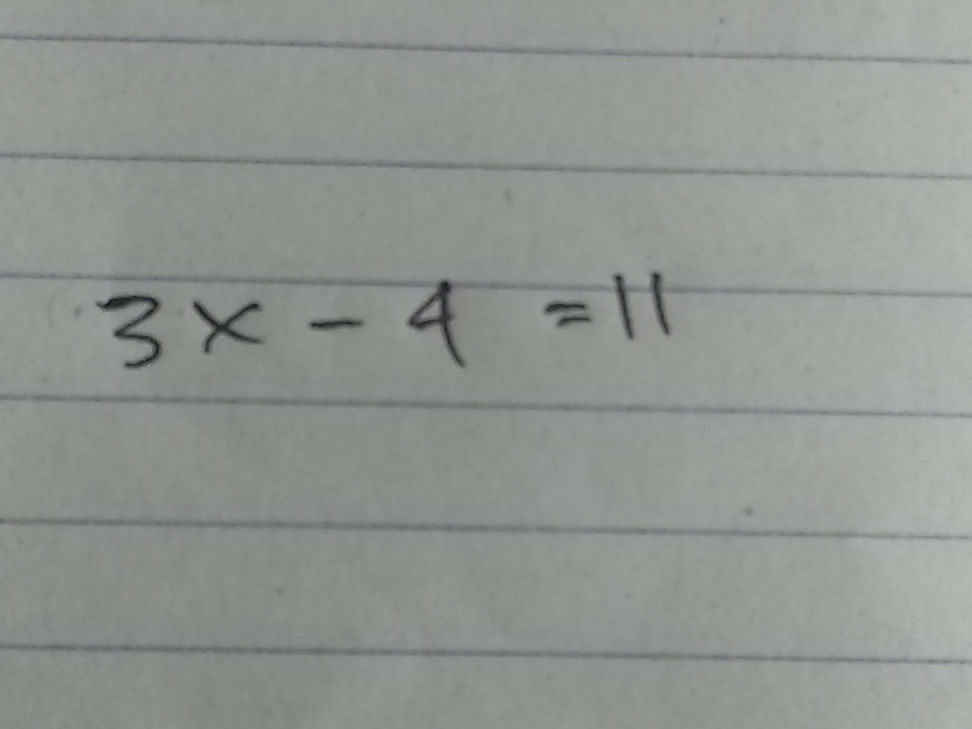 3x - 4 = 11